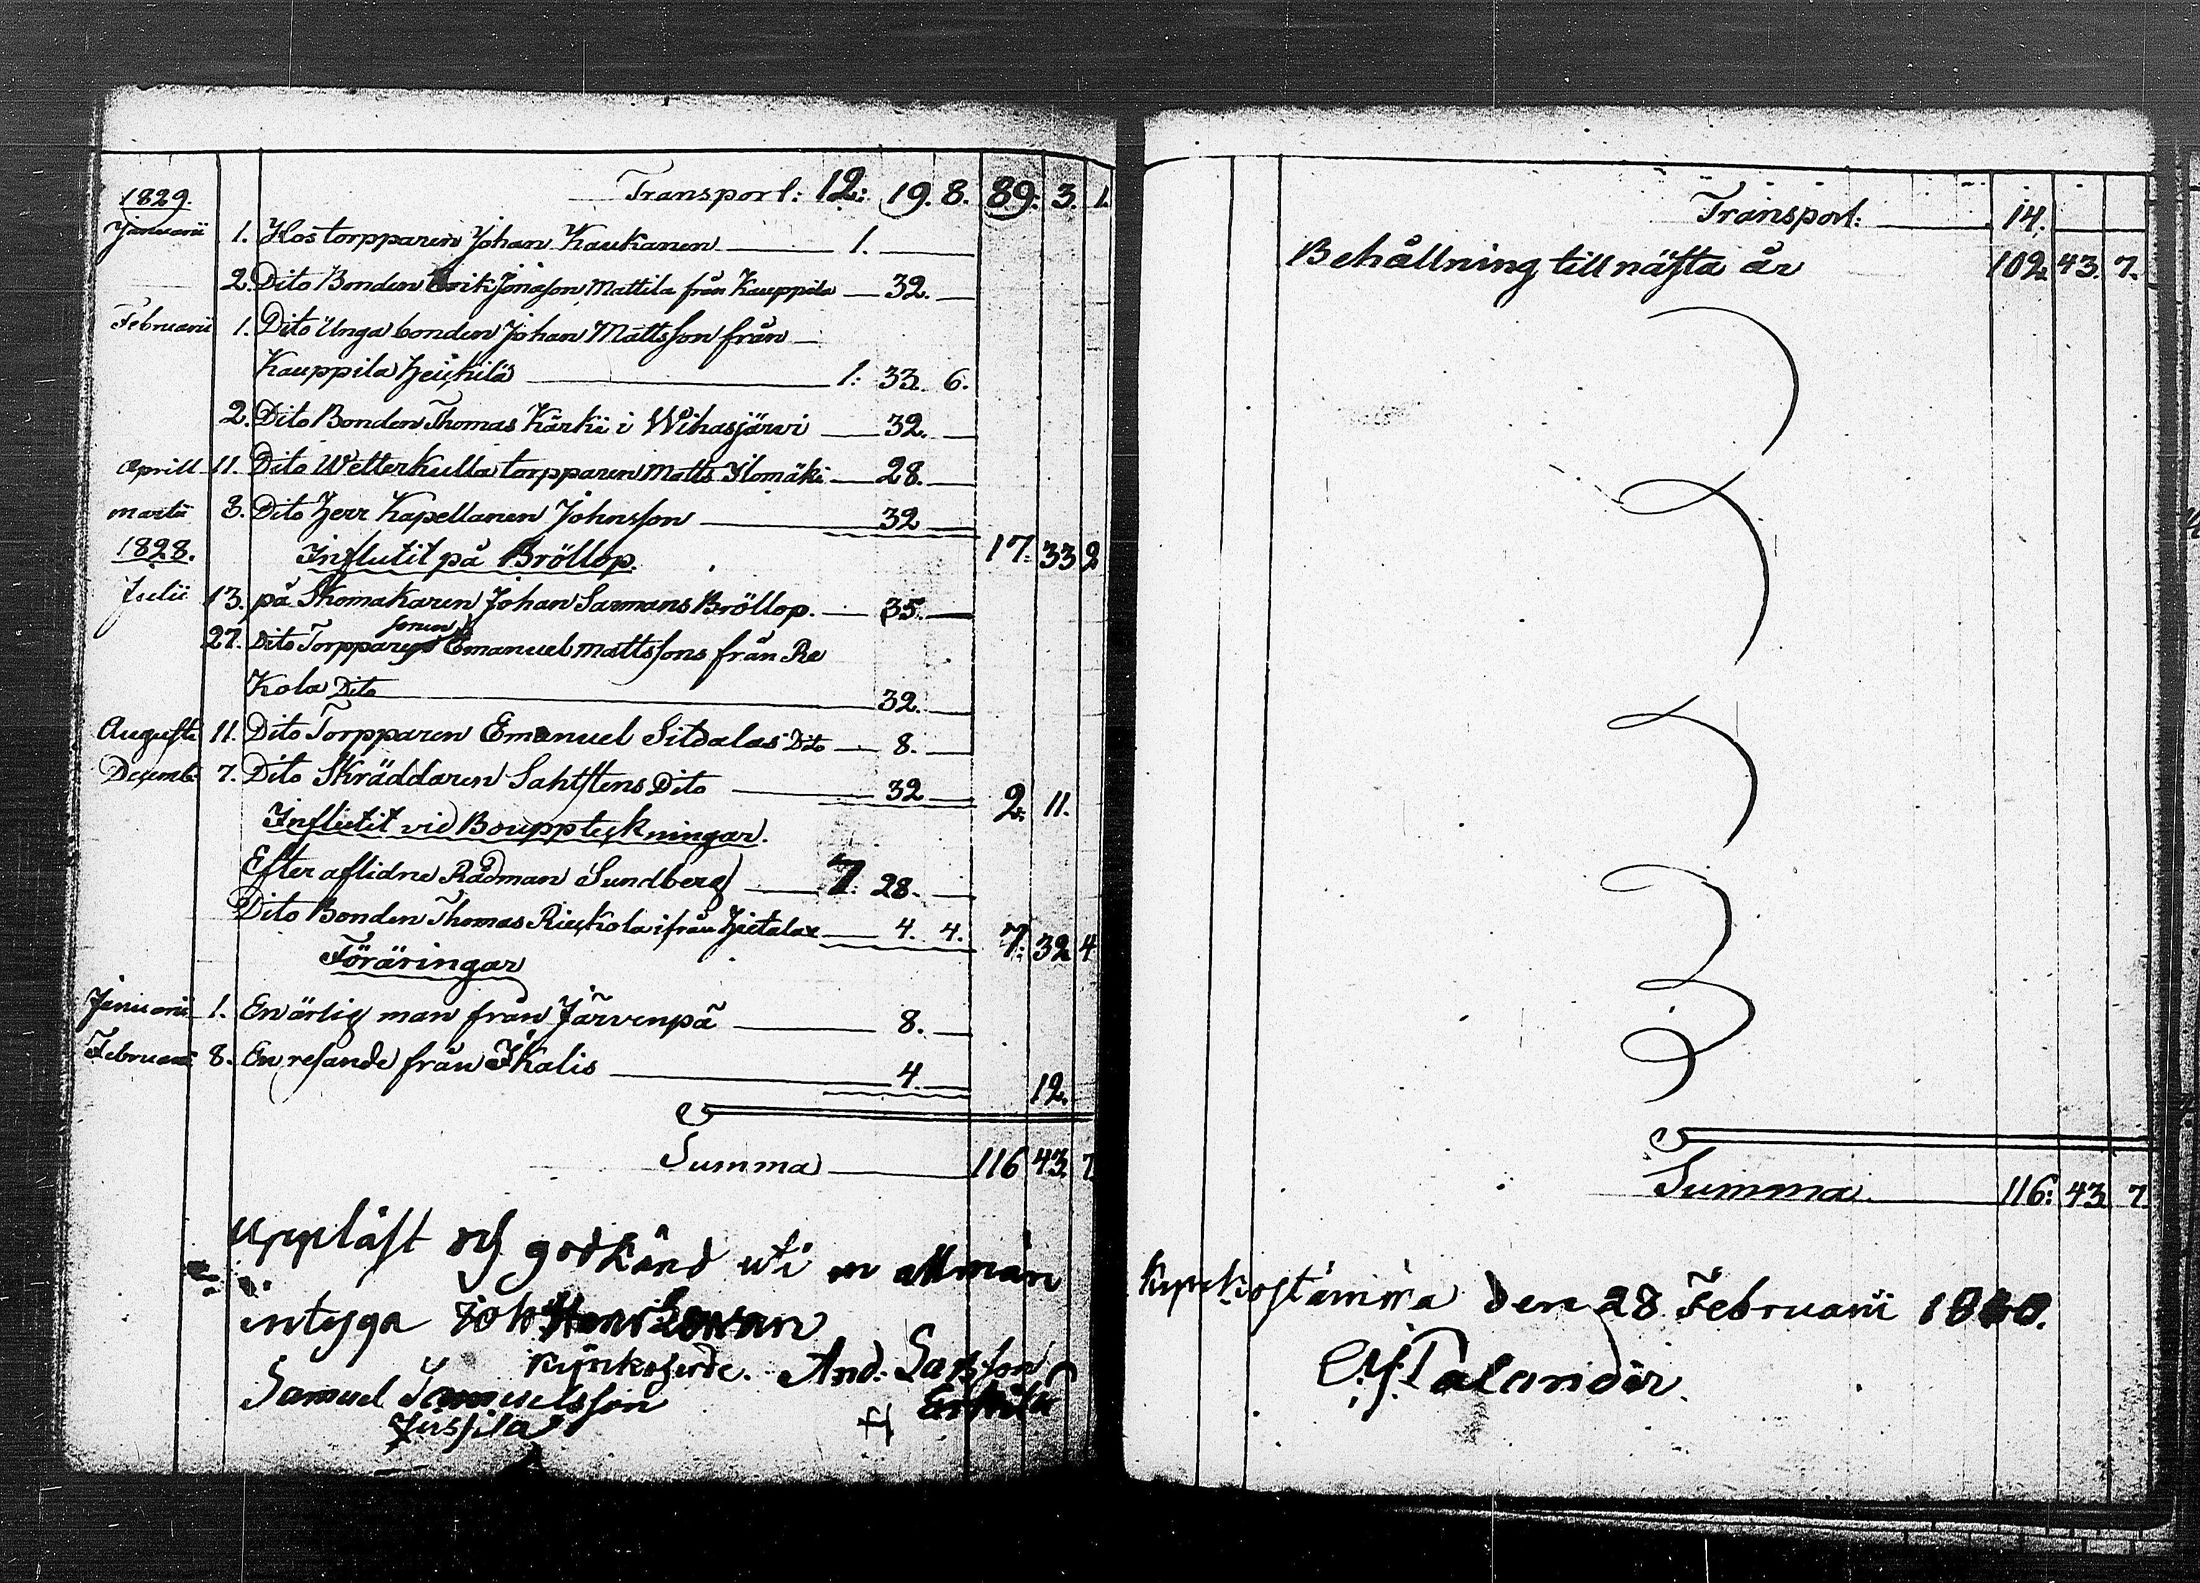 Transport: 12: 19. 8. 89: 3. 1.
1829.
Januarii 1. Hos torpparen Johan Kaukanen 1.
2. Dito Bonden Erik Jönason Mattila från Kauppila 32.
Februarii 1. Dito Unga bonden Johan Mattsson från
Kauppila Heickilä 1: 33. 6.
2. Dito Bonden Thomas Kärki i Wihasjärvi 32.
Aprill 11. Dito Wetterkulla torpparen Matts Ilomäki 28.
martii 8. Dito Herr Kapellanen Johnsson 32
17: 33 2
1828. Influtit på Bröllop.
Julii 13. på Skomakaren Johan Sarmans Bröllop. 35.
27. Dito Torpparesonen Emanuel Mattssons från Re
Kola Dito 32.
Augusti 11. Dito Torpparen Emanuel Sitdalas Dito 8.
Decemb: 7. Dito Skräddaren Sahlstens Dito 32 2: 11.
Influtit vid Bouppteckningar.
Efter aflidne Rådman Sundberg 7. 28.
Dito Bonden Thomas Rieckola ifrån Hietalax 4. 4. 7: 32 4
Föräringar
Januarii 1. En ärlig man från Järvenpä 8.
Februarii 8. En resande från Ikalis 4. 12.
Summa 116 43. 7
uppläst och godkänd uti en allmän
intyga Joh
Kyrkoherde. And:
Samuel Samuelsson
Jussila
Transport: 14.
Behållning till nästa år 102. 43. 7.
Summa 116: 43. 7
Kyrkostämma den 28 Februarii
Palander.